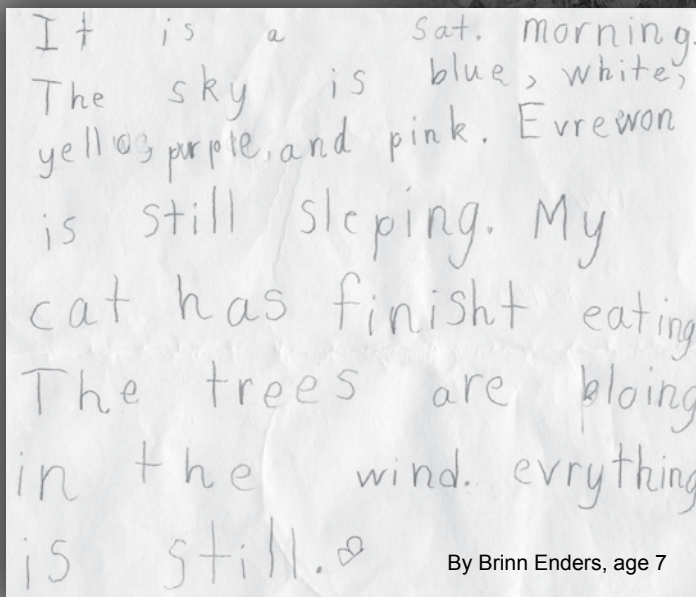 It is a Sat. morning.
The sky is blue, white,
yellow, purple, and pink. Evrewon
is still sleping. My
cat has finisht eating
The trees are bloing
in the wind. evrything
is still.
By Brinn Enders, age 7